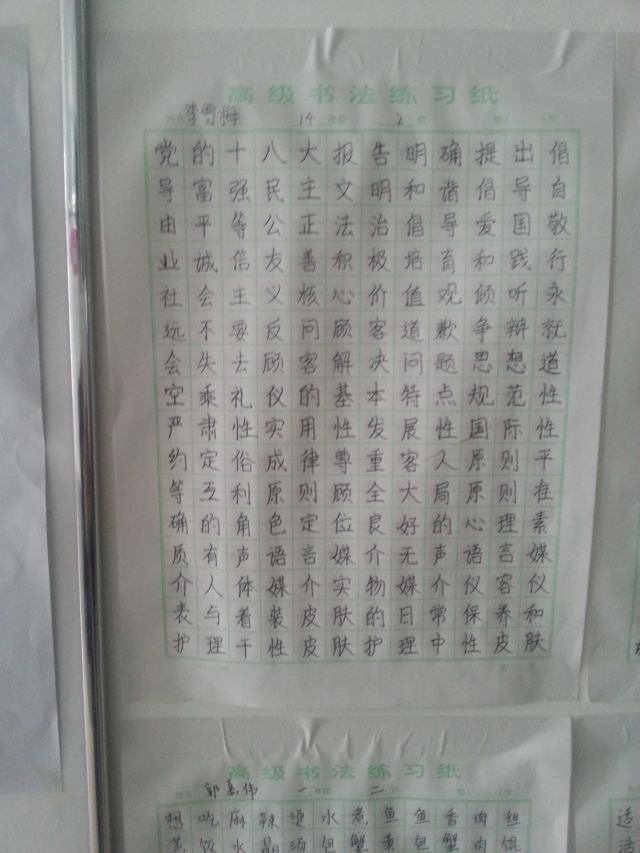 高级书法练习纸
李雪梅 14 2
党的十八大报告明确提出倡
导富强民主文明和谐倡导自
由平等公正法治倡导爱国敬
业诚信友善积极培育和践行
社会主义核心价值观倾听永
远不要反问顾客道歉争辩就
会失去顾客解决问题思想道
空乘礼仪的基本特点规范性
严肃性实用性发展性国际性
约定俗成律尊重客人原则平
等互利原则顾全大局原则准
确的角色定位良好的心理素
质有声语言媒介无声语言媒
介人体媒介实物媒介仪容仪
表与着装皮肤的日常保养和
护理干性皮肤护理中性皮肤
高级书法练习纸
一 二
想吃麻辣烫水煮鱼鱼香肉丝
饺水晶汤包蟹黄包蟹肉
适
活